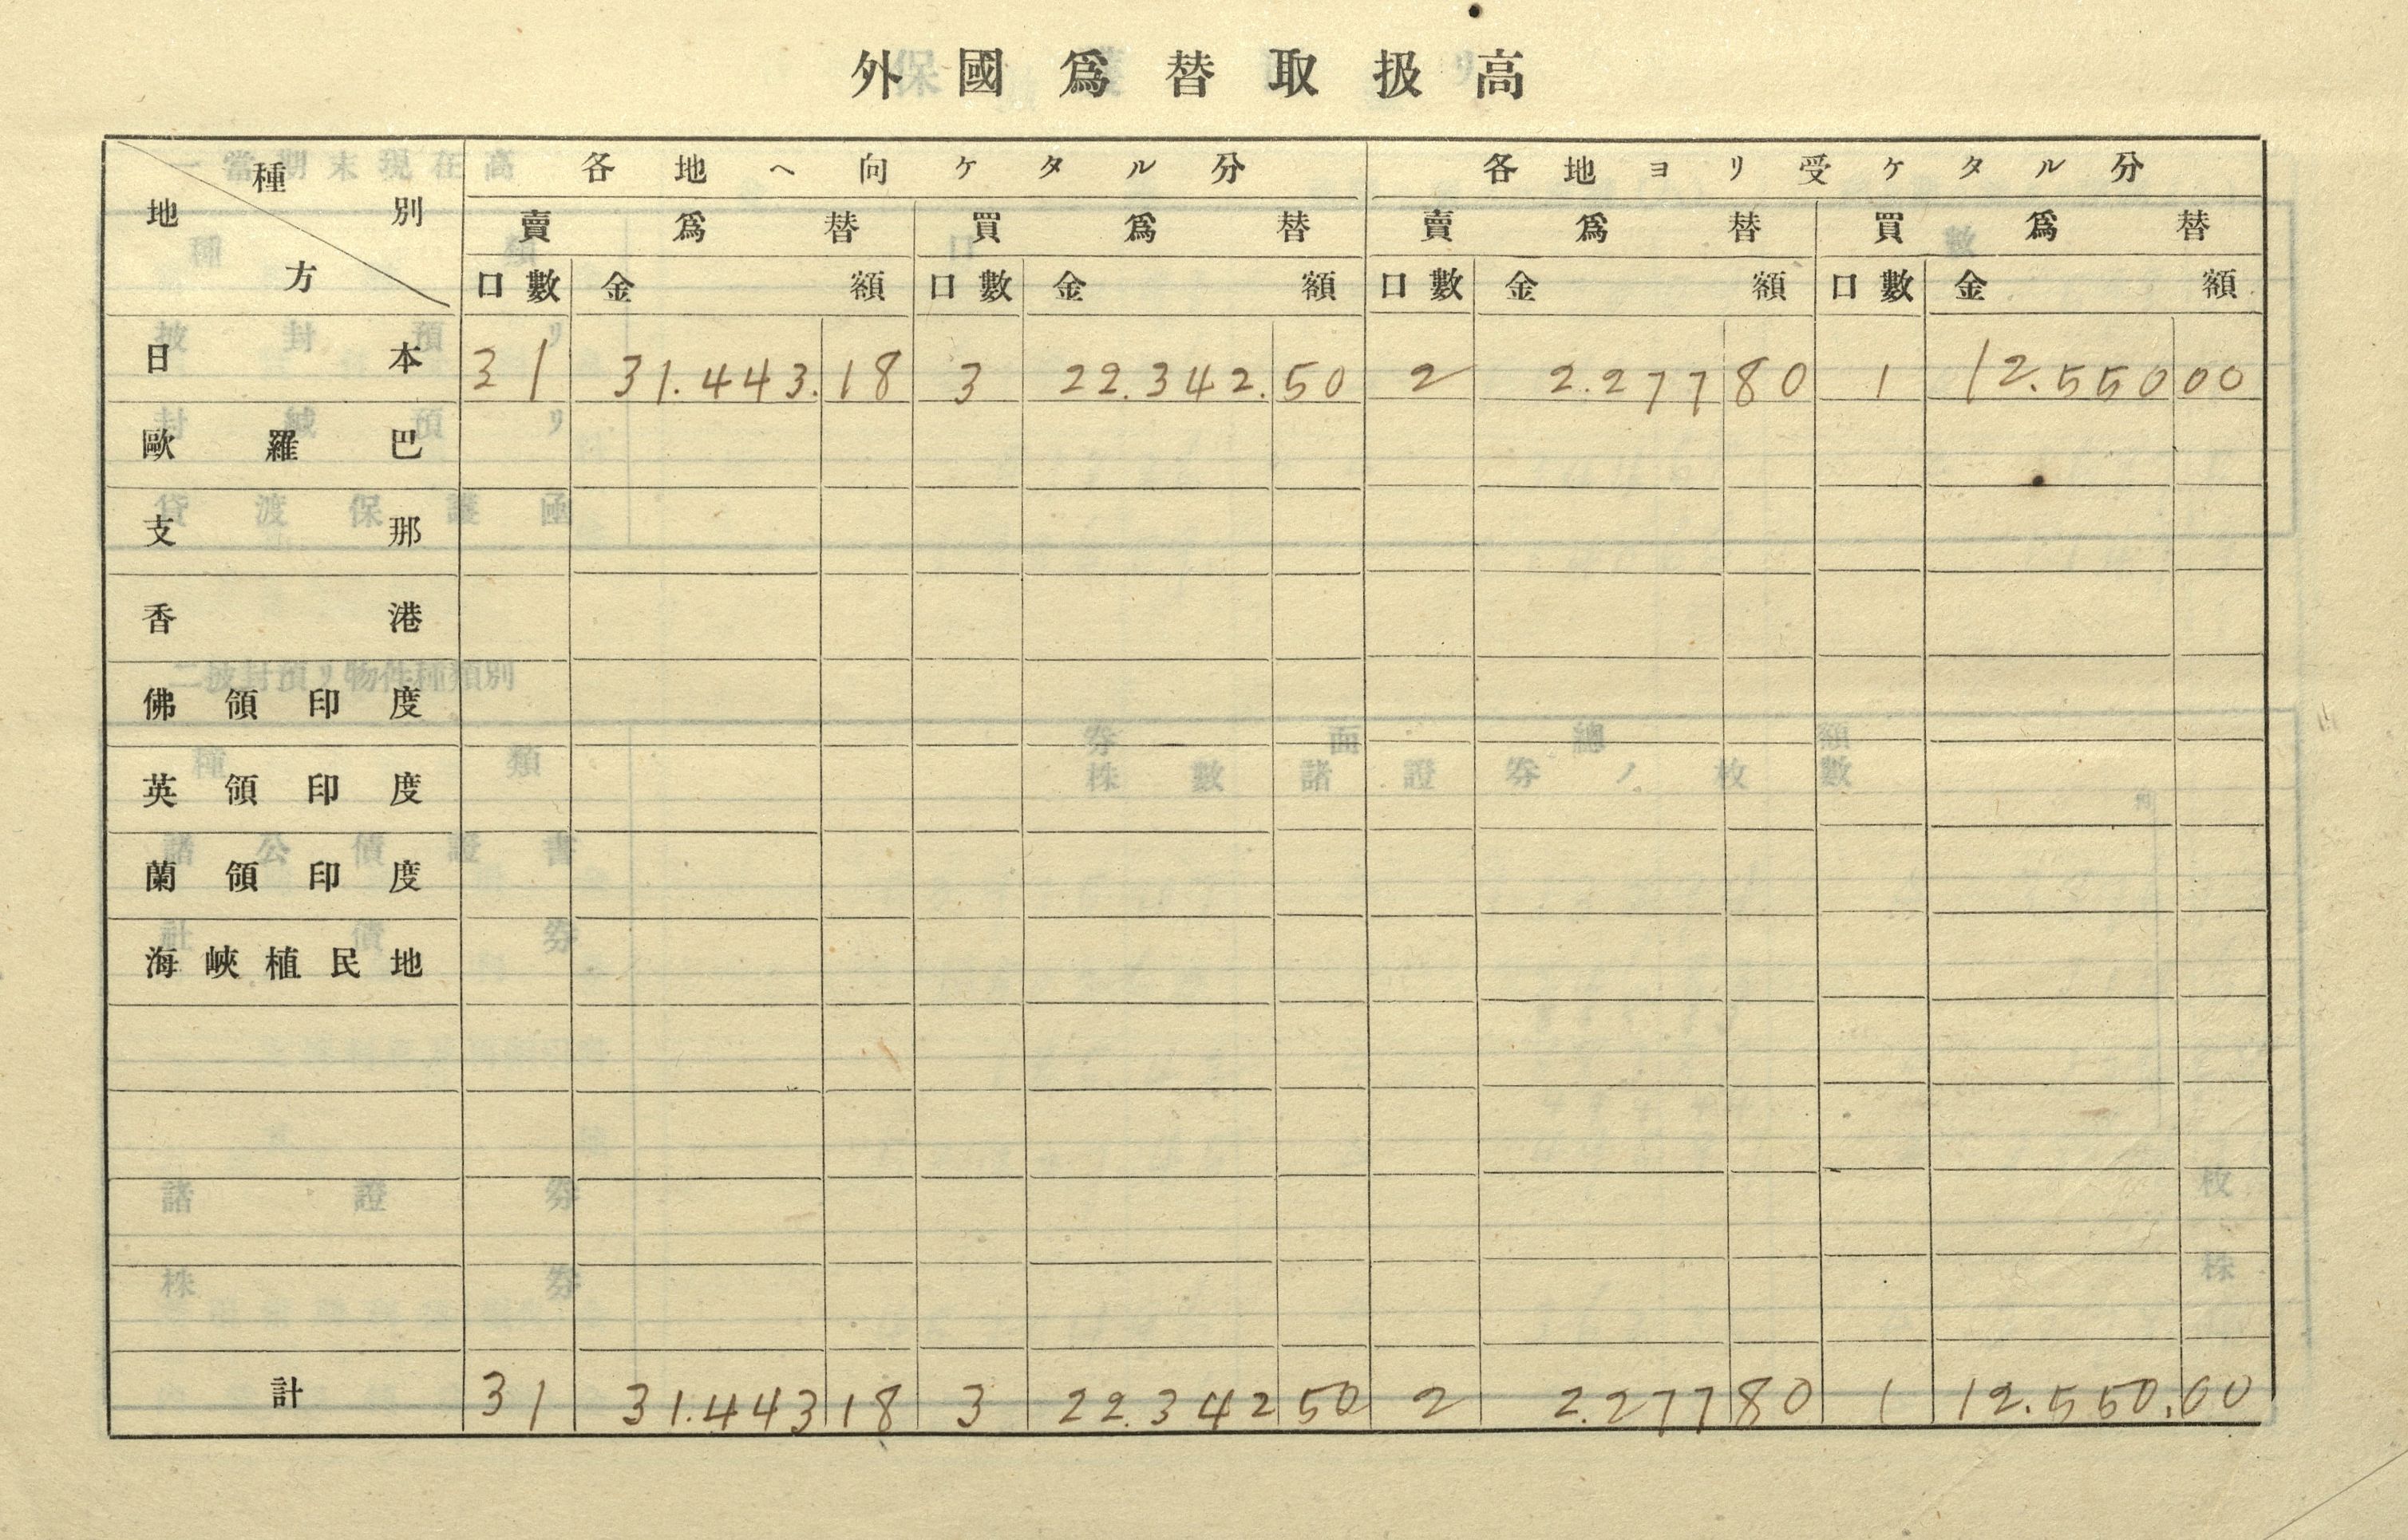 外國爲替取扱高
種別 地方 各地ヘ向ケタル分 各地ヨリ受ケタル分
賣爲替 買爲替 賣爲替 買爲替
口數 金額 口數 金額 口數 金額 口數 金額
日本 31 31.443.18 3 22.342.50 2 2.277 80 1 12.550 00
歐羅巴
支那
香港
佛領印度
英領印度
蘭領印度
海峽植民地
計 31 31.443 18 3 22.342 50 2 2.277 80 1 12.550.00